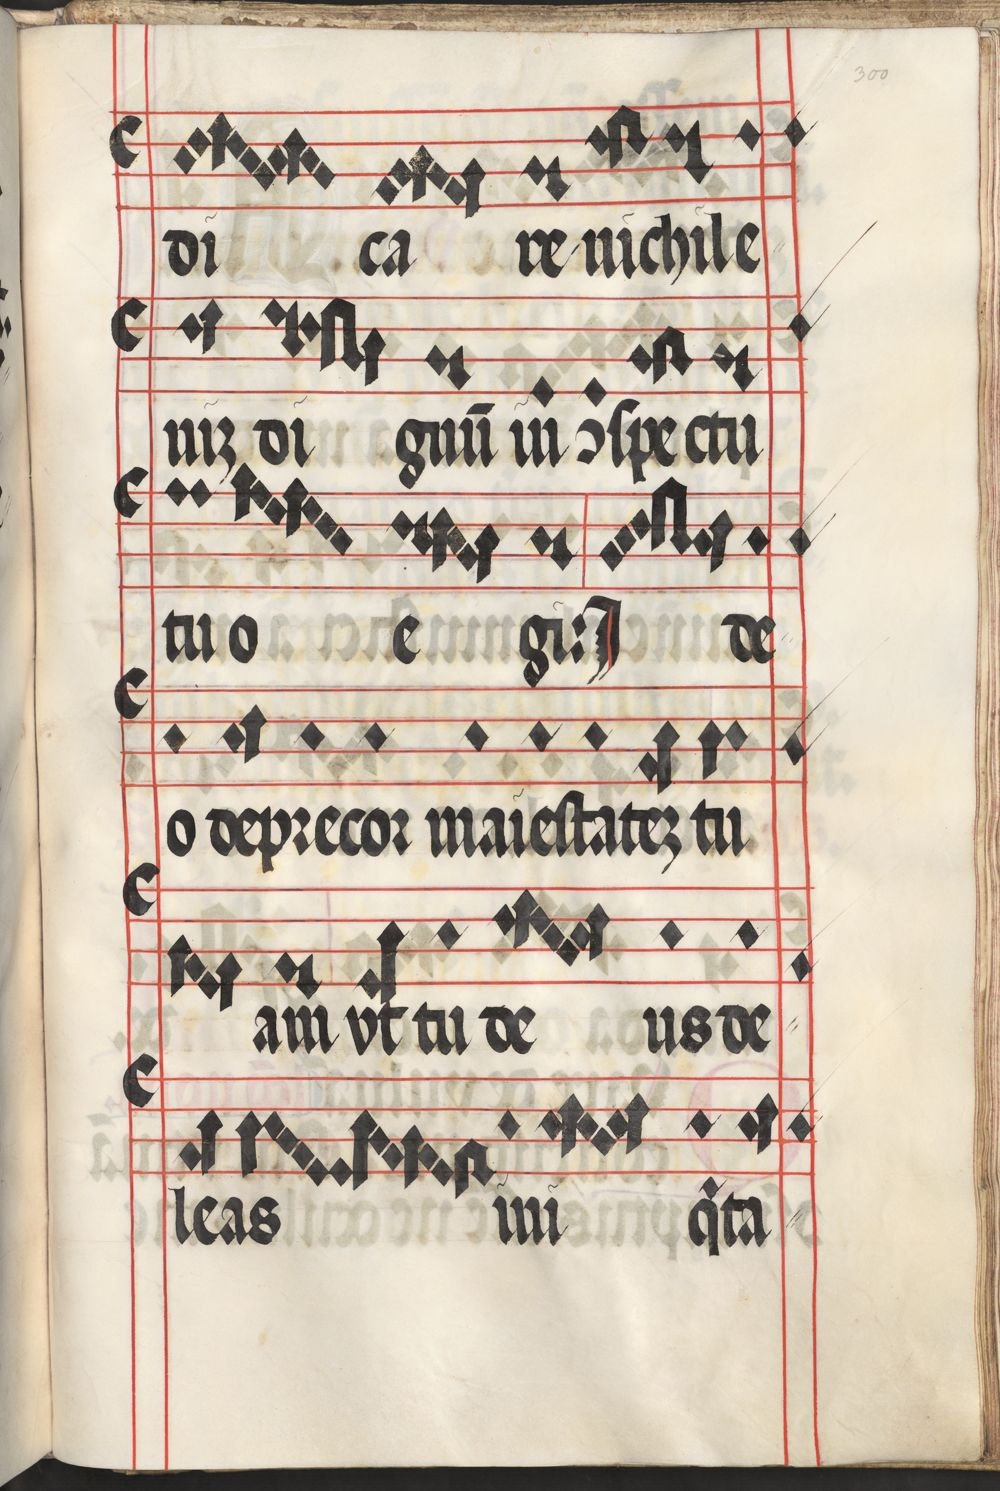 300
di ca re nichil e
niz di gnū in ↄspectu
tu o e gi: I de
o deprecor maiestatez tu
am vt tu de us de
leas ini q̄ta